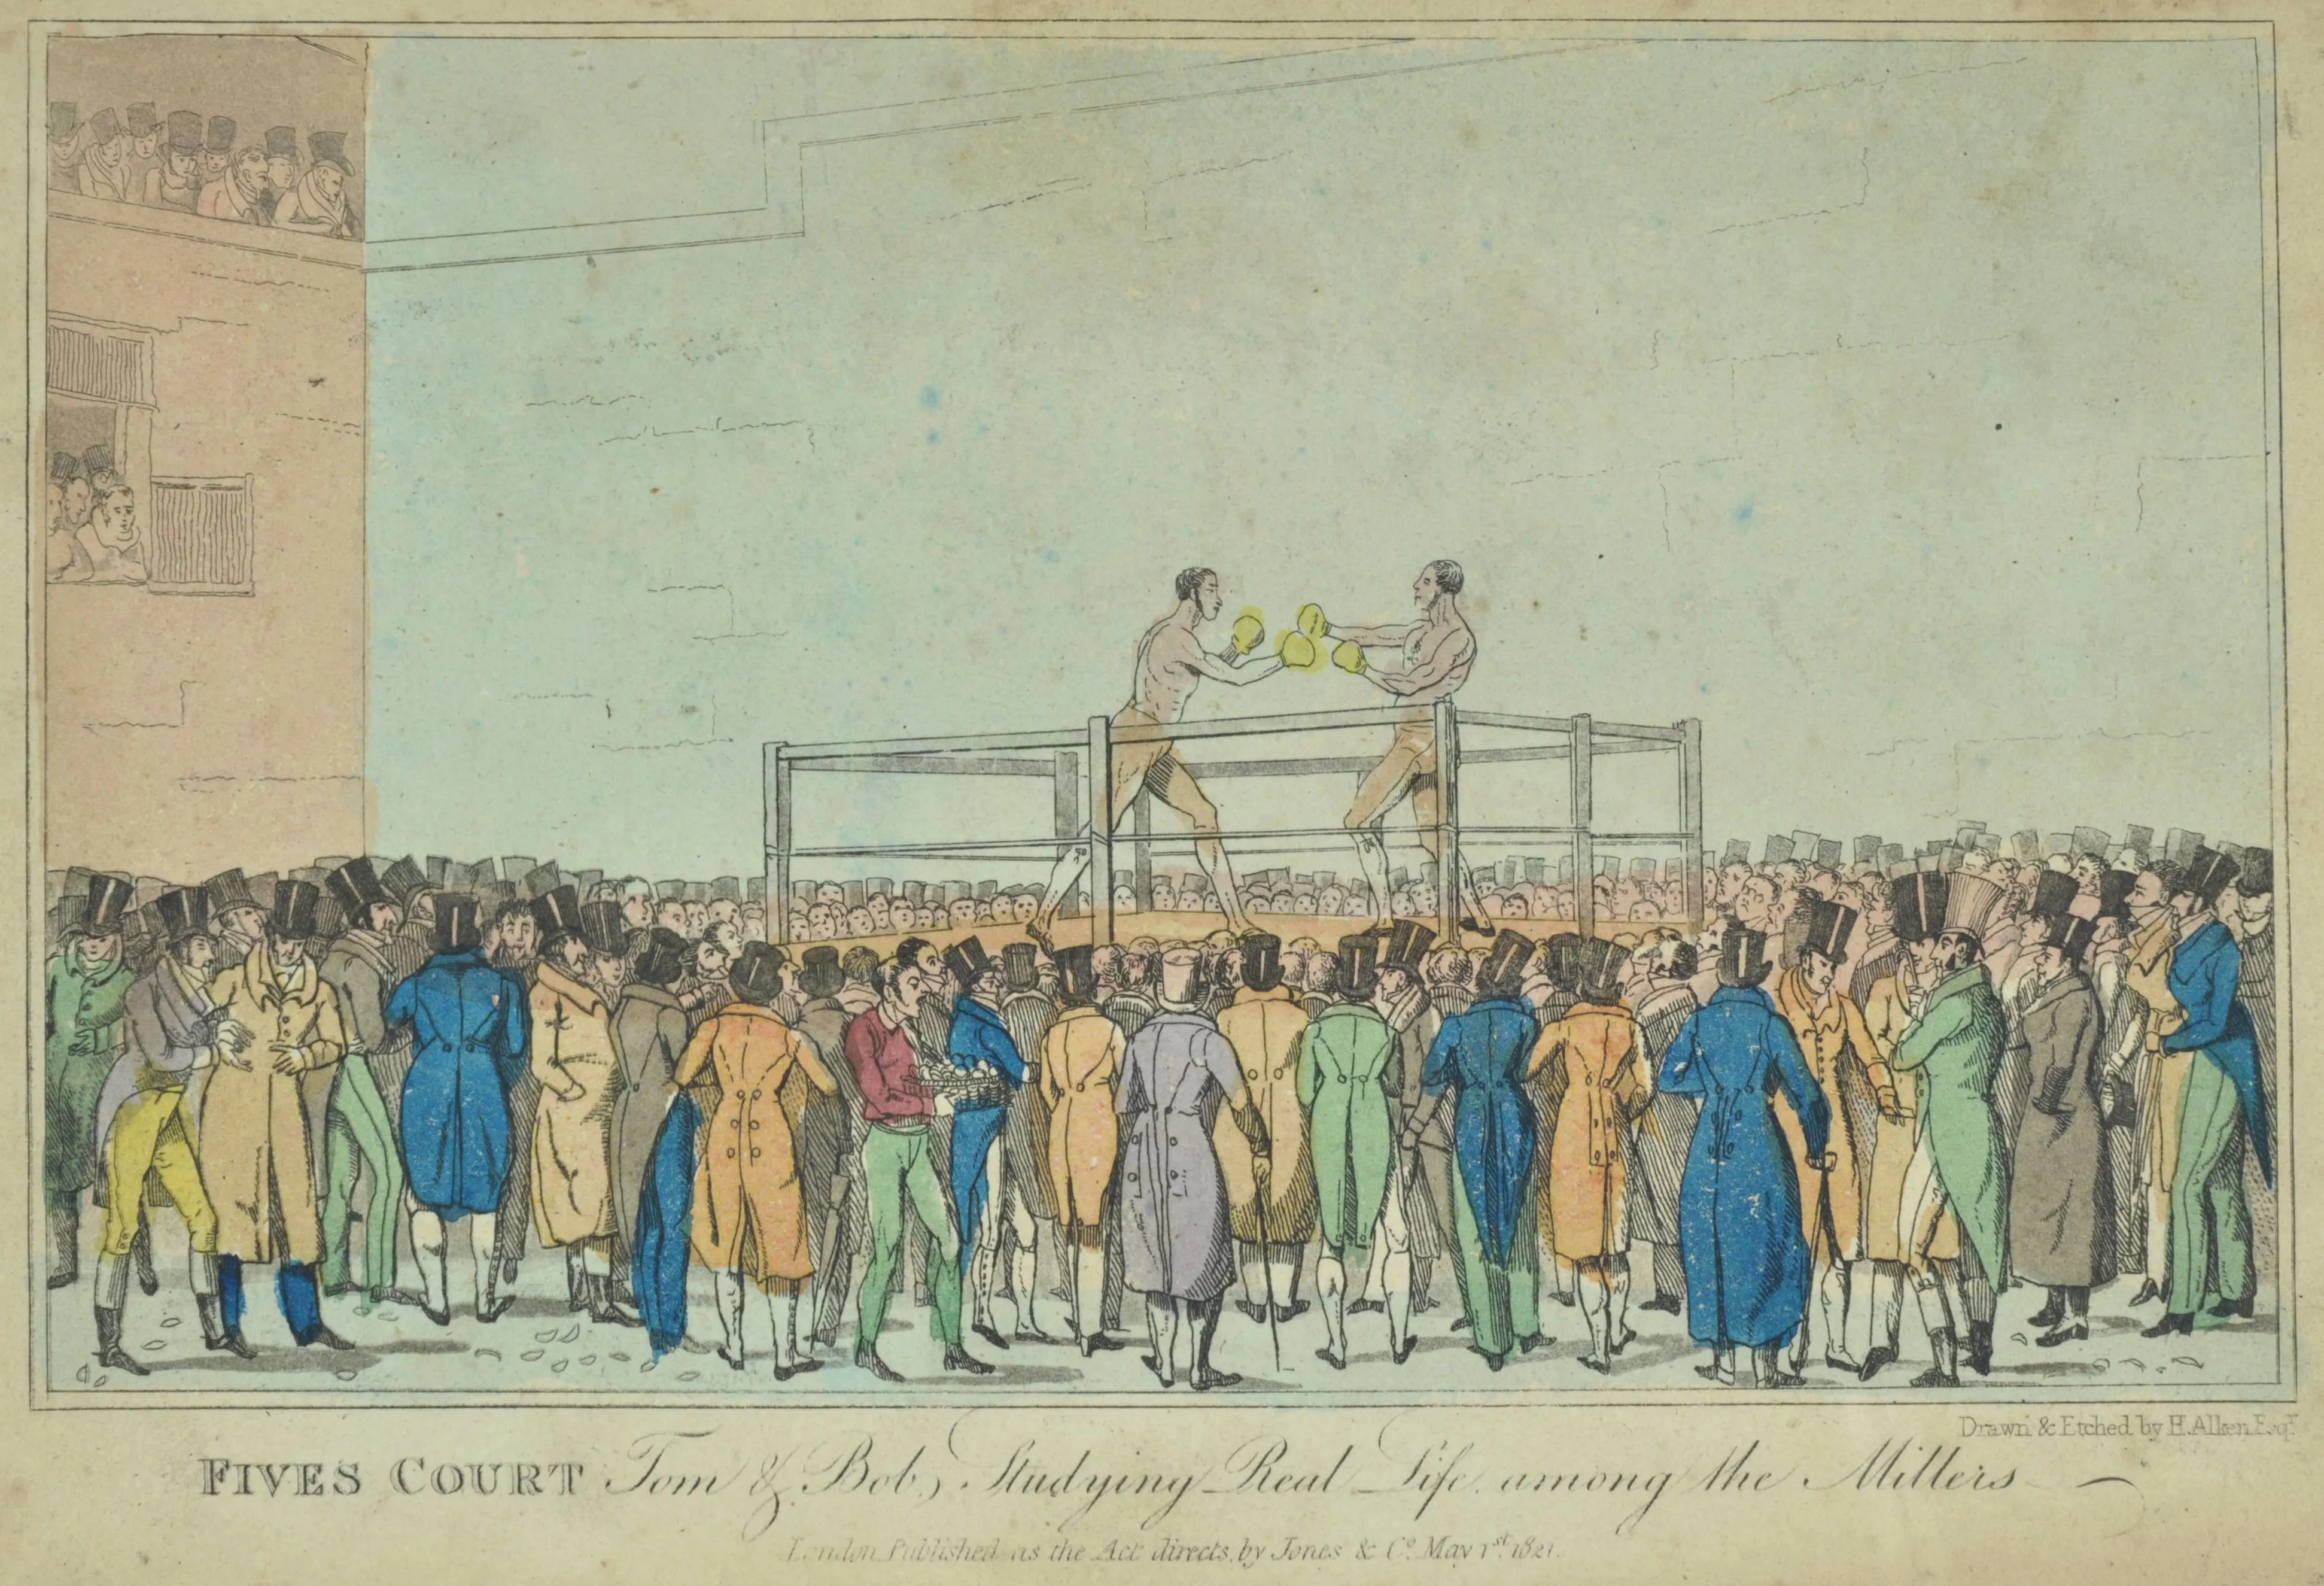 Drawn & Etched by H. Alken Esqr.
FIVES COURT Tom & Bob, Studying Real Life among the Millers
London Published as the Act directs, by Jones & Co. May 1st. 1821.